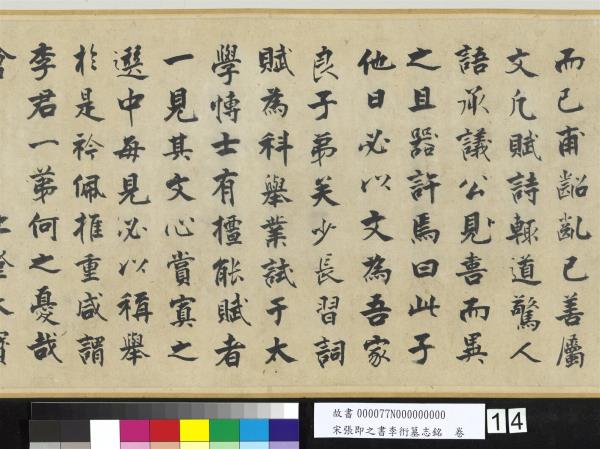 而已甫齠齔已善屬
文凡賦詩輒道驚人
語承議公見喜而異
之且器許焉曰此子
他日必以文為吾家
良子弟矣少長習詞
賦為科舉業試于太
學博士有擅能賦者
一見其文心賞寘之
選中每見必以稱舉
於是衿佩推重咸謂
李君一第何之憂哉
故書 000077N000000000
宋張即之書李衎墓志銘 卷
14